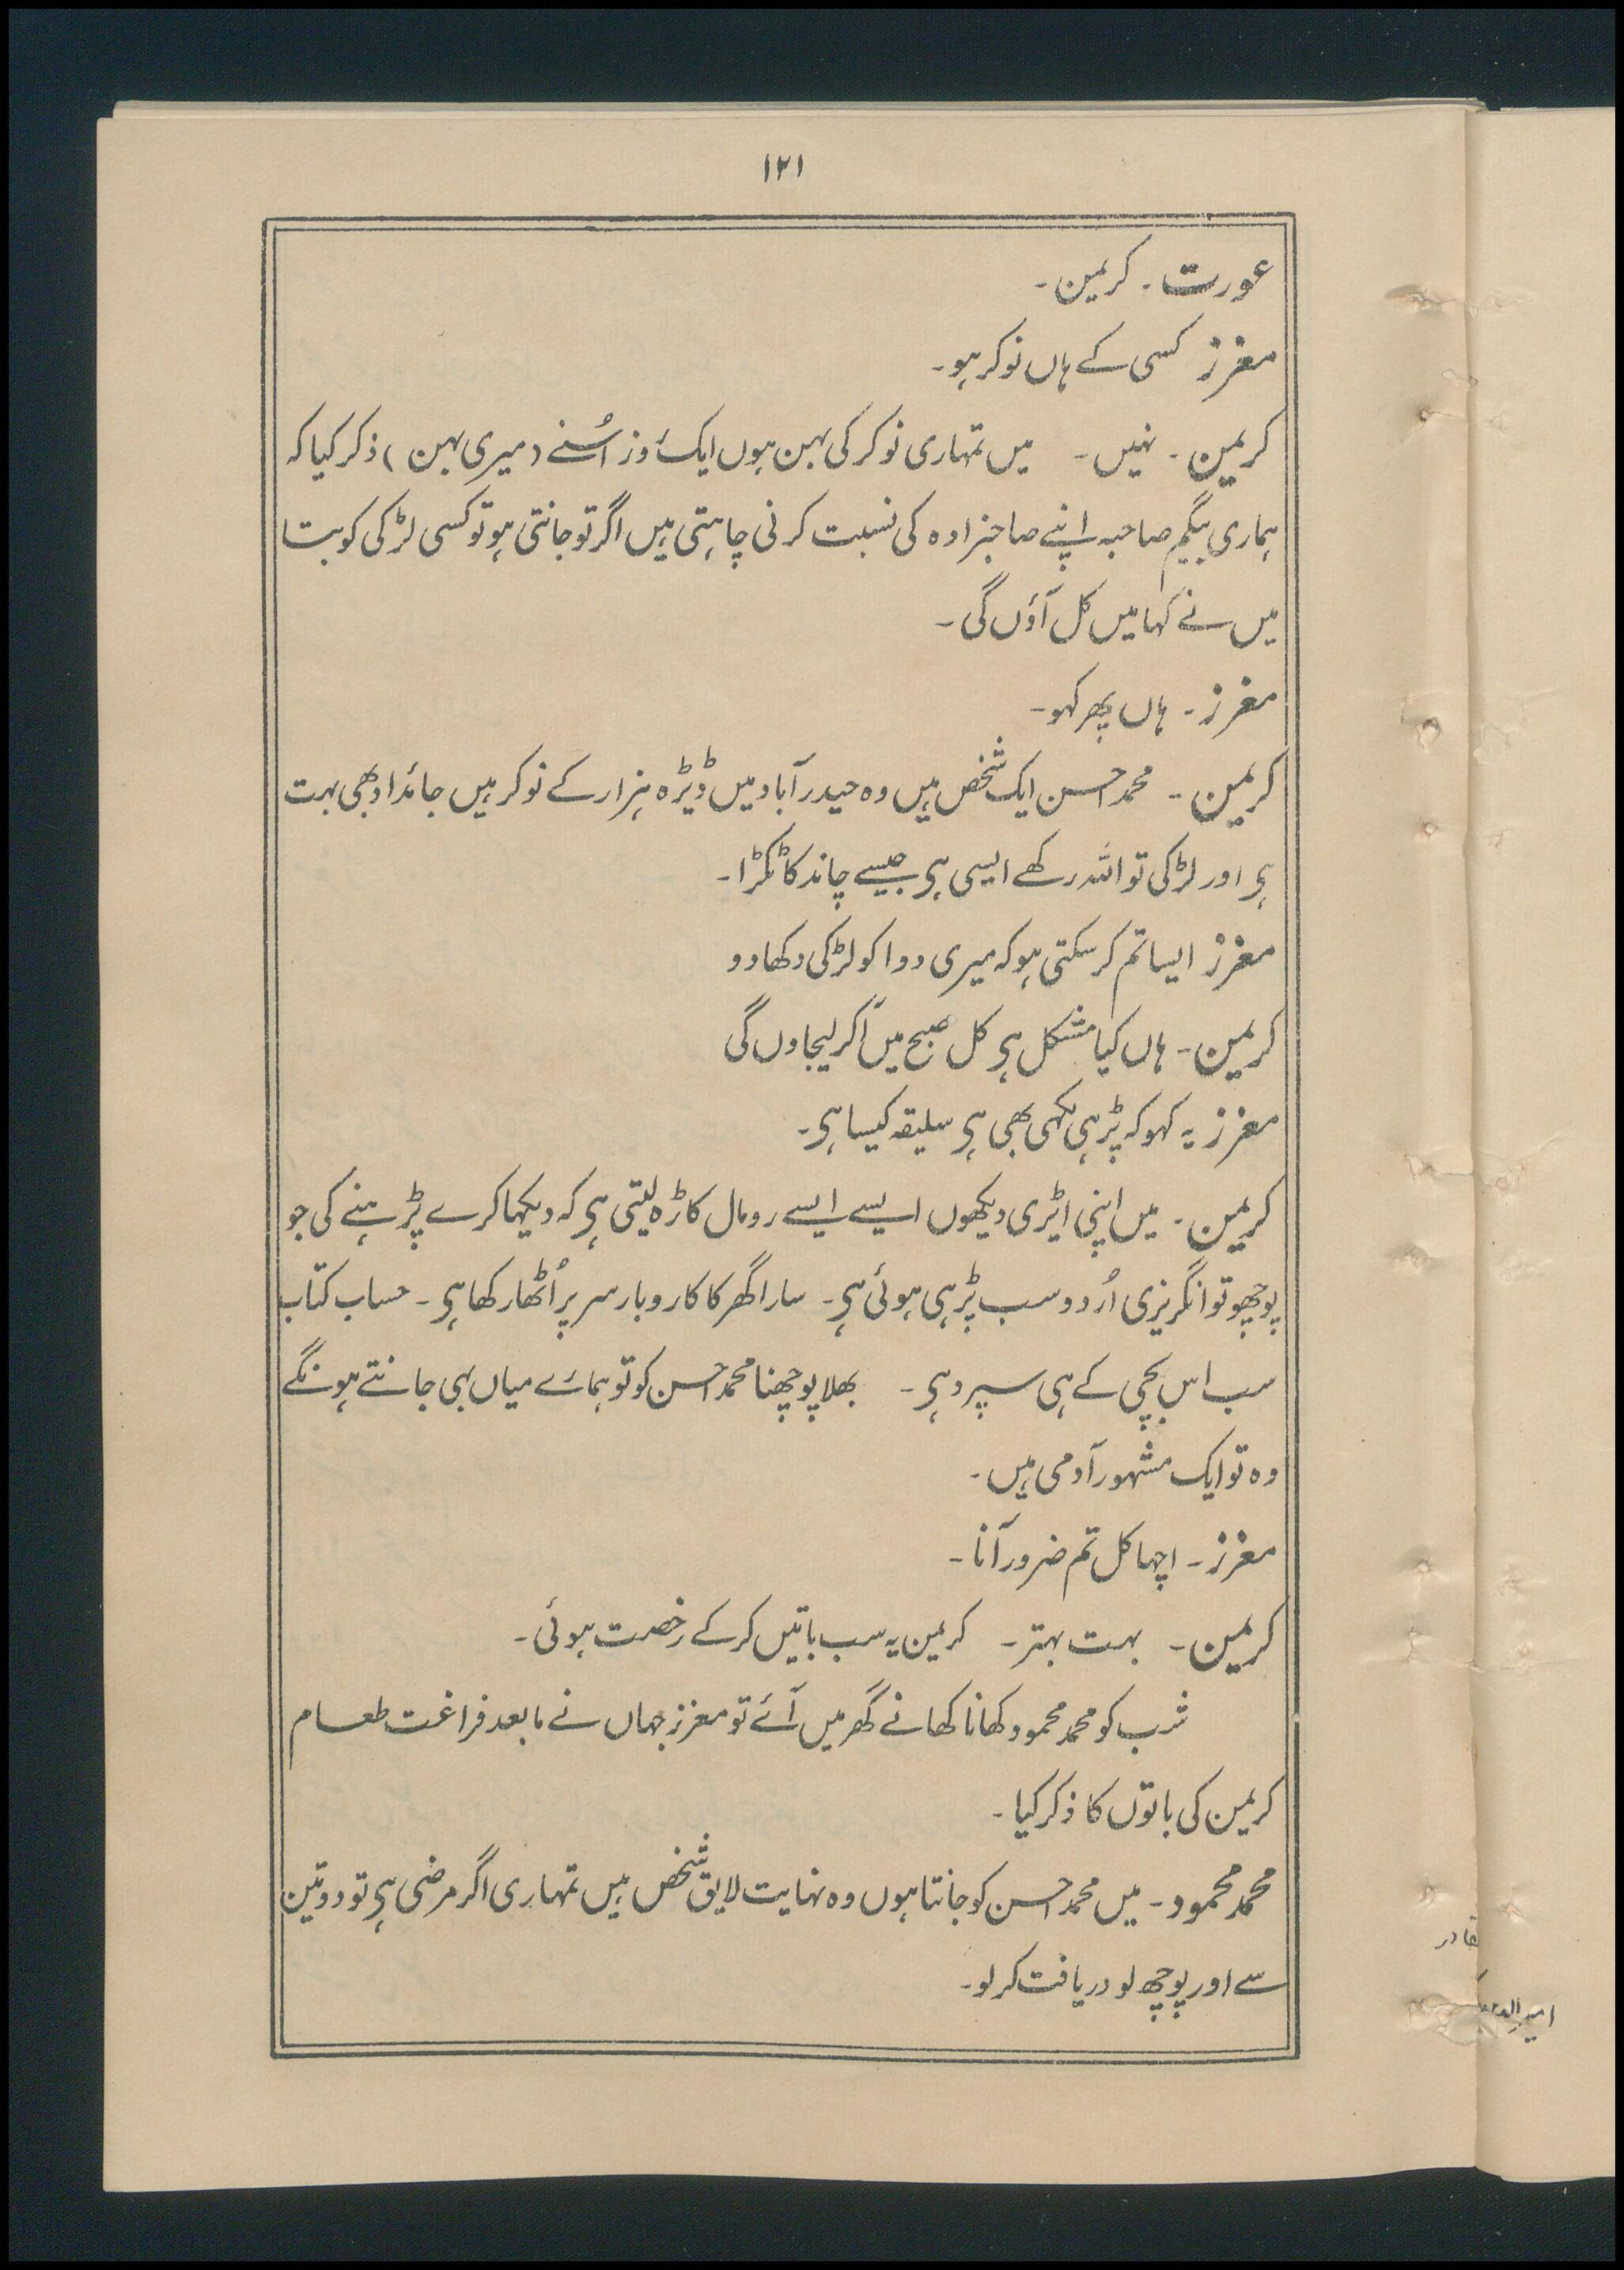 ۱۲۱
عورت ۔ کریمن ۔
معزز کسی کے ہاں نوکر ہو ۔
کریمن ۔ نہیں ۔ میں تمہاری نوکر کی بہن ہوں ایک روز اُسنے (میری بہن) ذکر کیا کہ
ہماری بیگم صاحبہ اپنے صاحبزادہ کی نسبت کرنی چاہتی ہیں اگر تو جانتی ہو تو کسی لڑکی کو بتا
میں نے کہا میں کل آؤں گی ۔
معزز ۔ ہاں پھر کہو ۔
کریمن ۔ محمد احسن ایک شخص ہیں وہ حیدرآباد میں ڈیڑہ ہزار کے نوکر ہیں جائداد بھی بہت
ہی اور لڑکی تو اللہ رکھے ایسی ہی جیسے چاند کا ٹکڑا ۔
معزز ایسا تم کر سکتی ہو کہ میری ددا کو لڑکی دکھادو
کریمن ۔ ہاں کیا مشکل ہی کل صبح میں آکر لیجاوں گی
معزز یہ کہو کہ پڑہی لکہی بھی ہی سلیقہ کیسا ہی ۔
کریمن ۔ میں اپنی ایڑی دیکھوں ایسے ایسے رومال کاڑہ لیتی ہی کہ دیکہا کرے پڑہنے کی جو
پوچھو تو انگریزی اُردو سب پڑہی ہوئی ہی ۔ سارا گھر کا کاروبار سر پر اُٹھا رکھا ہی ۔ حساب کتاب
سب اس بچی کے ہی سپرد ہی ۔ بھلا پوچھنا محمد احسن کو تو ہمارے میاں بہی جانتے ہونگے
وہ تو ایک مشہور آدمی ہیں ۔
معزز ۔ اچہا کل تم ضرور آنا ۔
کریمن ۔ بہت بہتر ۔ کریمن یہ سب باتیں کرکے رخصت ہوئی ۔
شب کو محمد محمود کھانا کھانے گھر میں آئے تو معزز جہاں نے مابعد فراغت طعام
کریمن کی باتوں کا ذکر کیا ۔
محمد محمود ۔ میں محمد احسن کو جانتا ہوں وہ نہایت لایق شخص ہیں تمہاری اگر مرضی ہی تو دو تین
سے اور پوچھ لو دریافت کرلو ۔